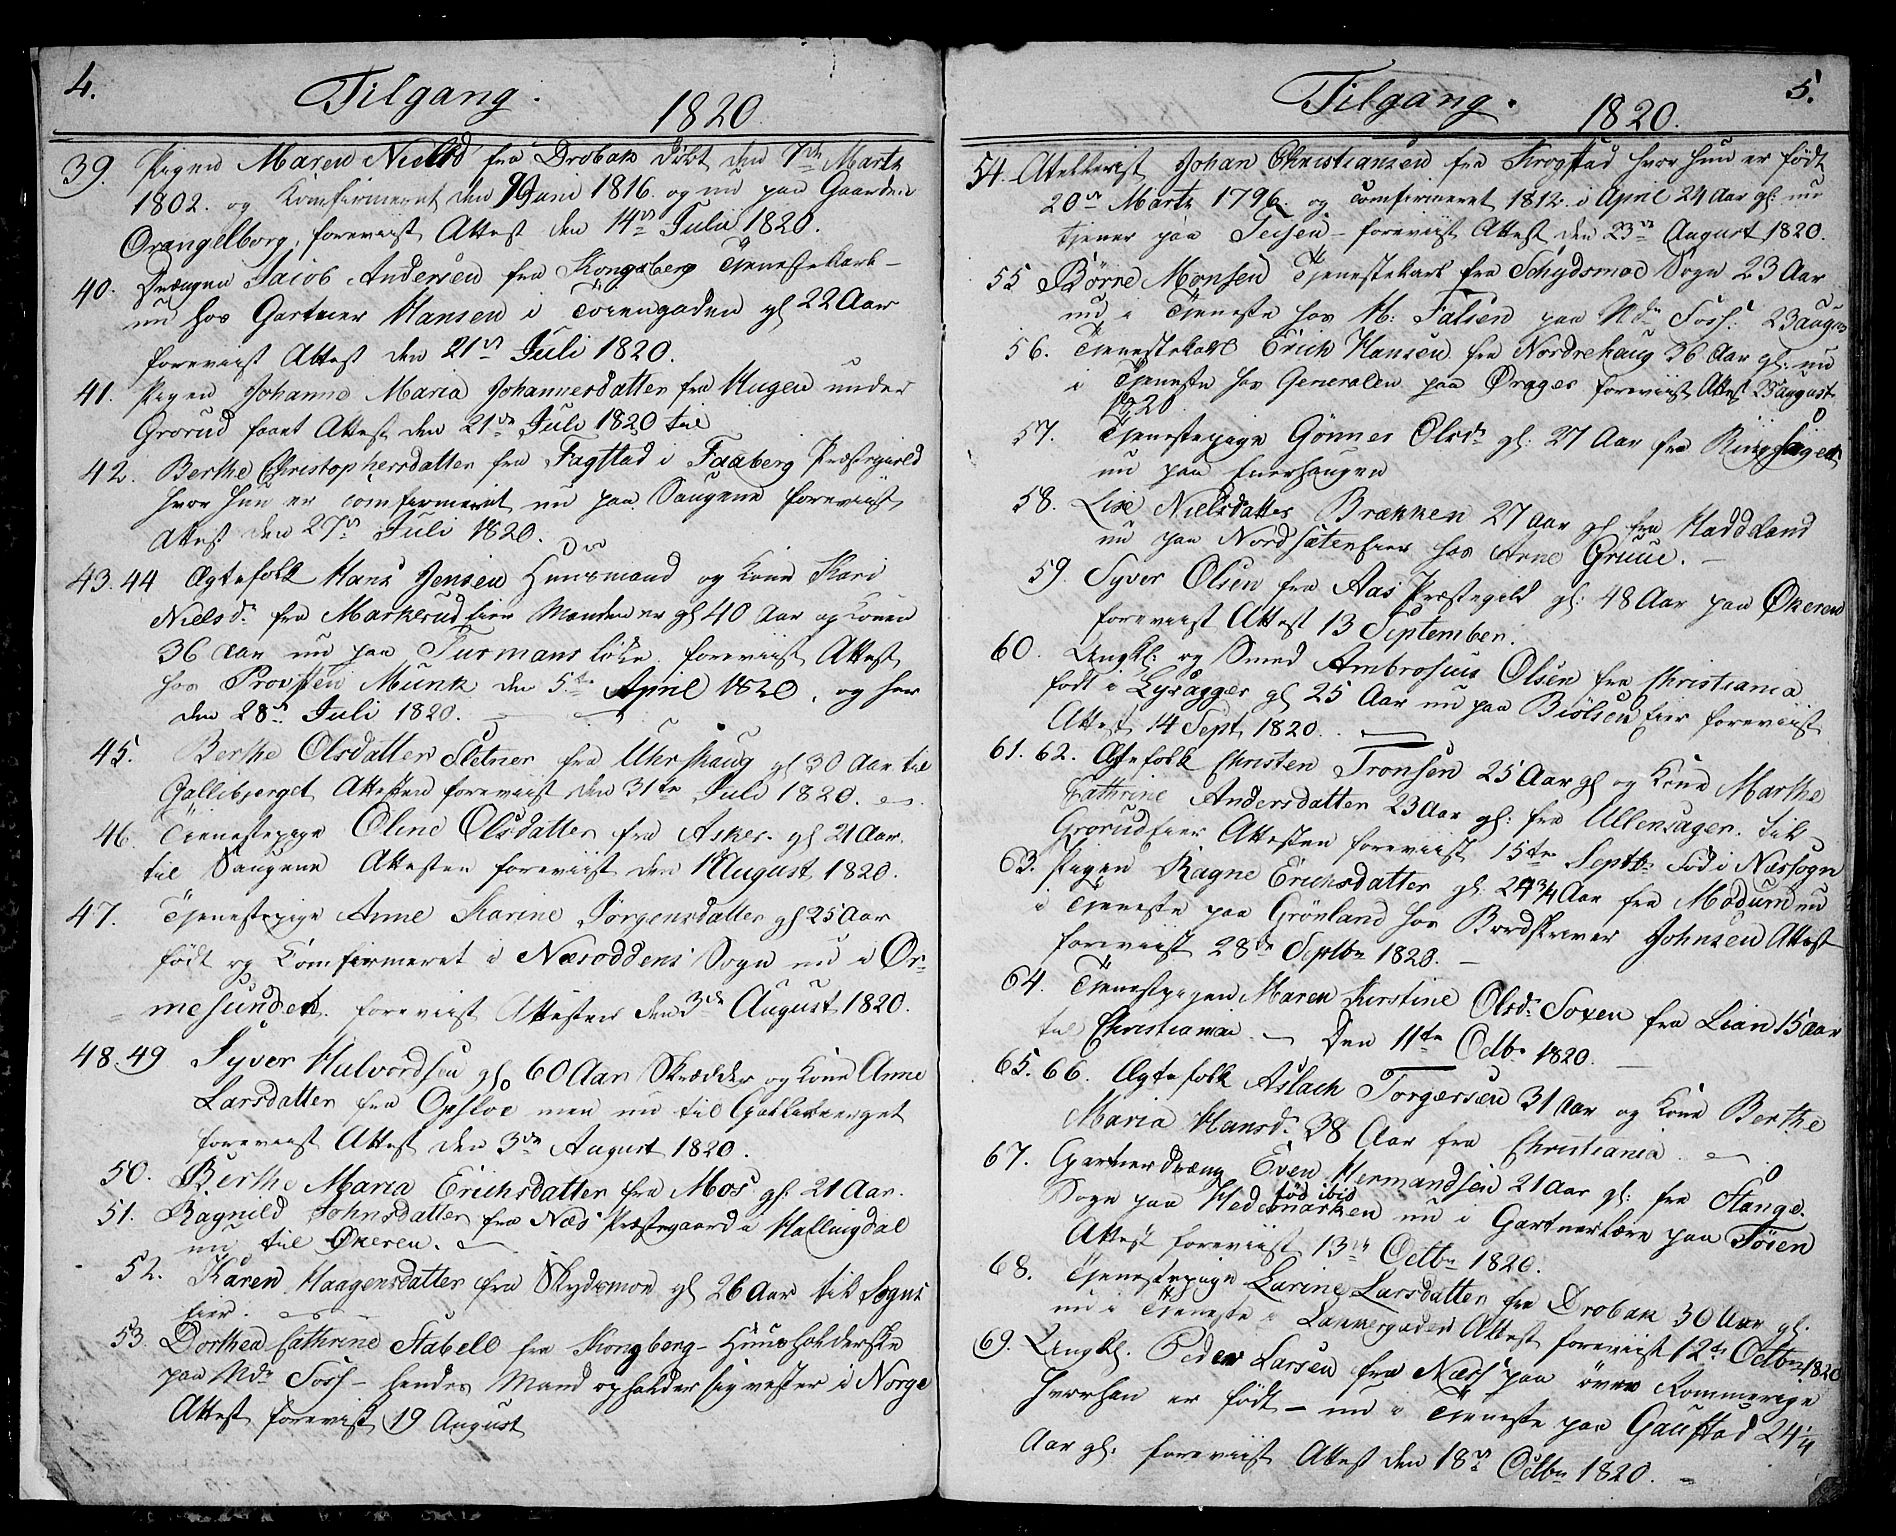 4.
Tilgang.
1820.
39. Pigen Maren Nielsd fra Drøbak døbt den 7de Martz
1802. og Konfirmeret den 9 Juni 1816. og nu paa Gaarden
Orangelborg, foreviist Attest den 14de Julii 1820.
40. Drængen Jacob Andersen fra Kongsberg Tjenestekarl -
nu hos Gartner Hansen i Töiengaden gl 22 Aar
foreviist Attest den 21de Juli 1820.
41. Pigen Johanne Maria Johannesdatter fra Haugen under
Grorud faaet Attest den 21de Juli 1820 til
42. Berthe Christophersdatter fra Fagstad i Faaberg Præstegield
hvor hun er comfirmeret nu paa Saugene foreviist
Attest den 27de Juli 1820.
43. 44 Ægtefolk Hans Jensen Huusmand og Kone Kari
Nielsdr fra Markerud Eier Manden er gl 40 Aar og Konen
36 Aar nu paa Turmans løke foreviist Attest
hos Provsten Munk den 5te April 1820, og her
den 28de Juli 1820.
45. Berthe Olsdatter Sletner fra Uhrskaug gl 30 Aar til
Gallibjerget Attesten foreviist den 31te Juli 1820.
46. Tienestepige Oline Olsdatter fra Asker gl 21 Aar.
til Saugene Attesten foreviist den 1 August 1820.
47. Tjenestepige Anne Karine Jørgensdatter gl 25 Aar
født og Comfirmeret i Næsoddens Sogn nu i Or=
mesundet. foreviist Attesten den 3de August 1820.
48. 49 Syver Halvordsen gl 60 Aar Skrædder og Kone Anne
Larsdatter fra Opsloe men nu til Galleberget
foreviist Attest den 3de August 1820.
50. Berthe Maria Erichsdatter fra Mos gl: 21 Aar.
51. Ragnild Johnsdatter fra Næs Præstegaard i Hallingdal
nu til Økeren.
52. Karen Haagensdatter fra Skydsmoe gl 26 Aar til Sogns
Eier.
53. Dorthea Cathrine Stabell fra Kongberg - Huusholderske
paa Ndr Fosf - hendes Mand opholder sig vester i Norge
Attest forevist 19 August
5.
Tilgang.
1820.
54. Johan Christiansen fra Krogstad hvor hun er født
20de Martz 1796 og comfirmeret 1812 i April 24 Aar gl: nu
tjener paa Teisen - foreviist Attest den 23de August 1820.
55 Börre Monsen Tjenestekarl fra Schydsmoe Sogn 23 Aar
nu i Tjeneste hos H: Falsen paa Ndr Fosf. 23 aug
56. Tjenestekarl Erich Hansen fra Nordrehaug 36 Aar gl: nu
i Tjeneste hos Generalen paa foreviist Attest 23 august
1820.
57. Tjenestepige Gønner Olsdr gl: 27 Aar fra Ringsager
nu paa Enerhaugen
58. Lise Nielsdatter Brækken 27 Aar gl fra Hadeland
nu paa Nordsæter Eier hos Arne Gruue. -
59. Syver Olsen fra Aas Præstegild gl: 48 Aar paa Økeren
foreviist Attest 13 September.
60. Ungkl: og Smed Ambrosius Olsen fra Christiania
født i Lysagger gl 25 Aar nu paa Biölsen Eier foreviist
Attest 14 Sept 1820.
61. 62. Ægtefolk Christen Tronsen 25 Aar gl og Kone Marthe
Cathrine Andersdatter 23 Aar gl: fra Ullensager. til
Grorud Eier Attesten foreviist 15te Septb.
63. Pigen Ragne Erichsdatter gl: 24 3/4 Aar fra Modum Fød i Næs Sogn nu
i Tjeneste paa Grönland hos Bordskriver Johnsen Attest
foreviist 28de Septbr 1820. -
64. Tjenestepigen Maren Kirstine Olsdr. Soxen fra Lian 15 Aar
til Christiania - Den 11te Octbr 1820.
65. 66. Ægtefolk Aslach Torgersen 31 Aar og Kone Berthe
Maria Hansdr. 38 Aar fra Christiania.
67. Gartnerdræng Even Hermandsen 21 Aar gl: fra Stange
Sogn paa Hedemarken fød ibid nu i Gartnerlære paa Töien
Attest foreviist 13de Octbr 1820.
68. Tjenestepige Larine Larsdatter fra Drøbak 30 Aar gl.
nu i Tjeneste i Lakkegaden Attest foreviist 12te Octbr 1820
69. Ungkl. Peder Larsen fra Næss paa över Rommerige
hvorhan er født - nu i Tjeneste paa Gaustad 24 1/4
Aar gl. foreviist Attest den 18de Octbr 1820. -